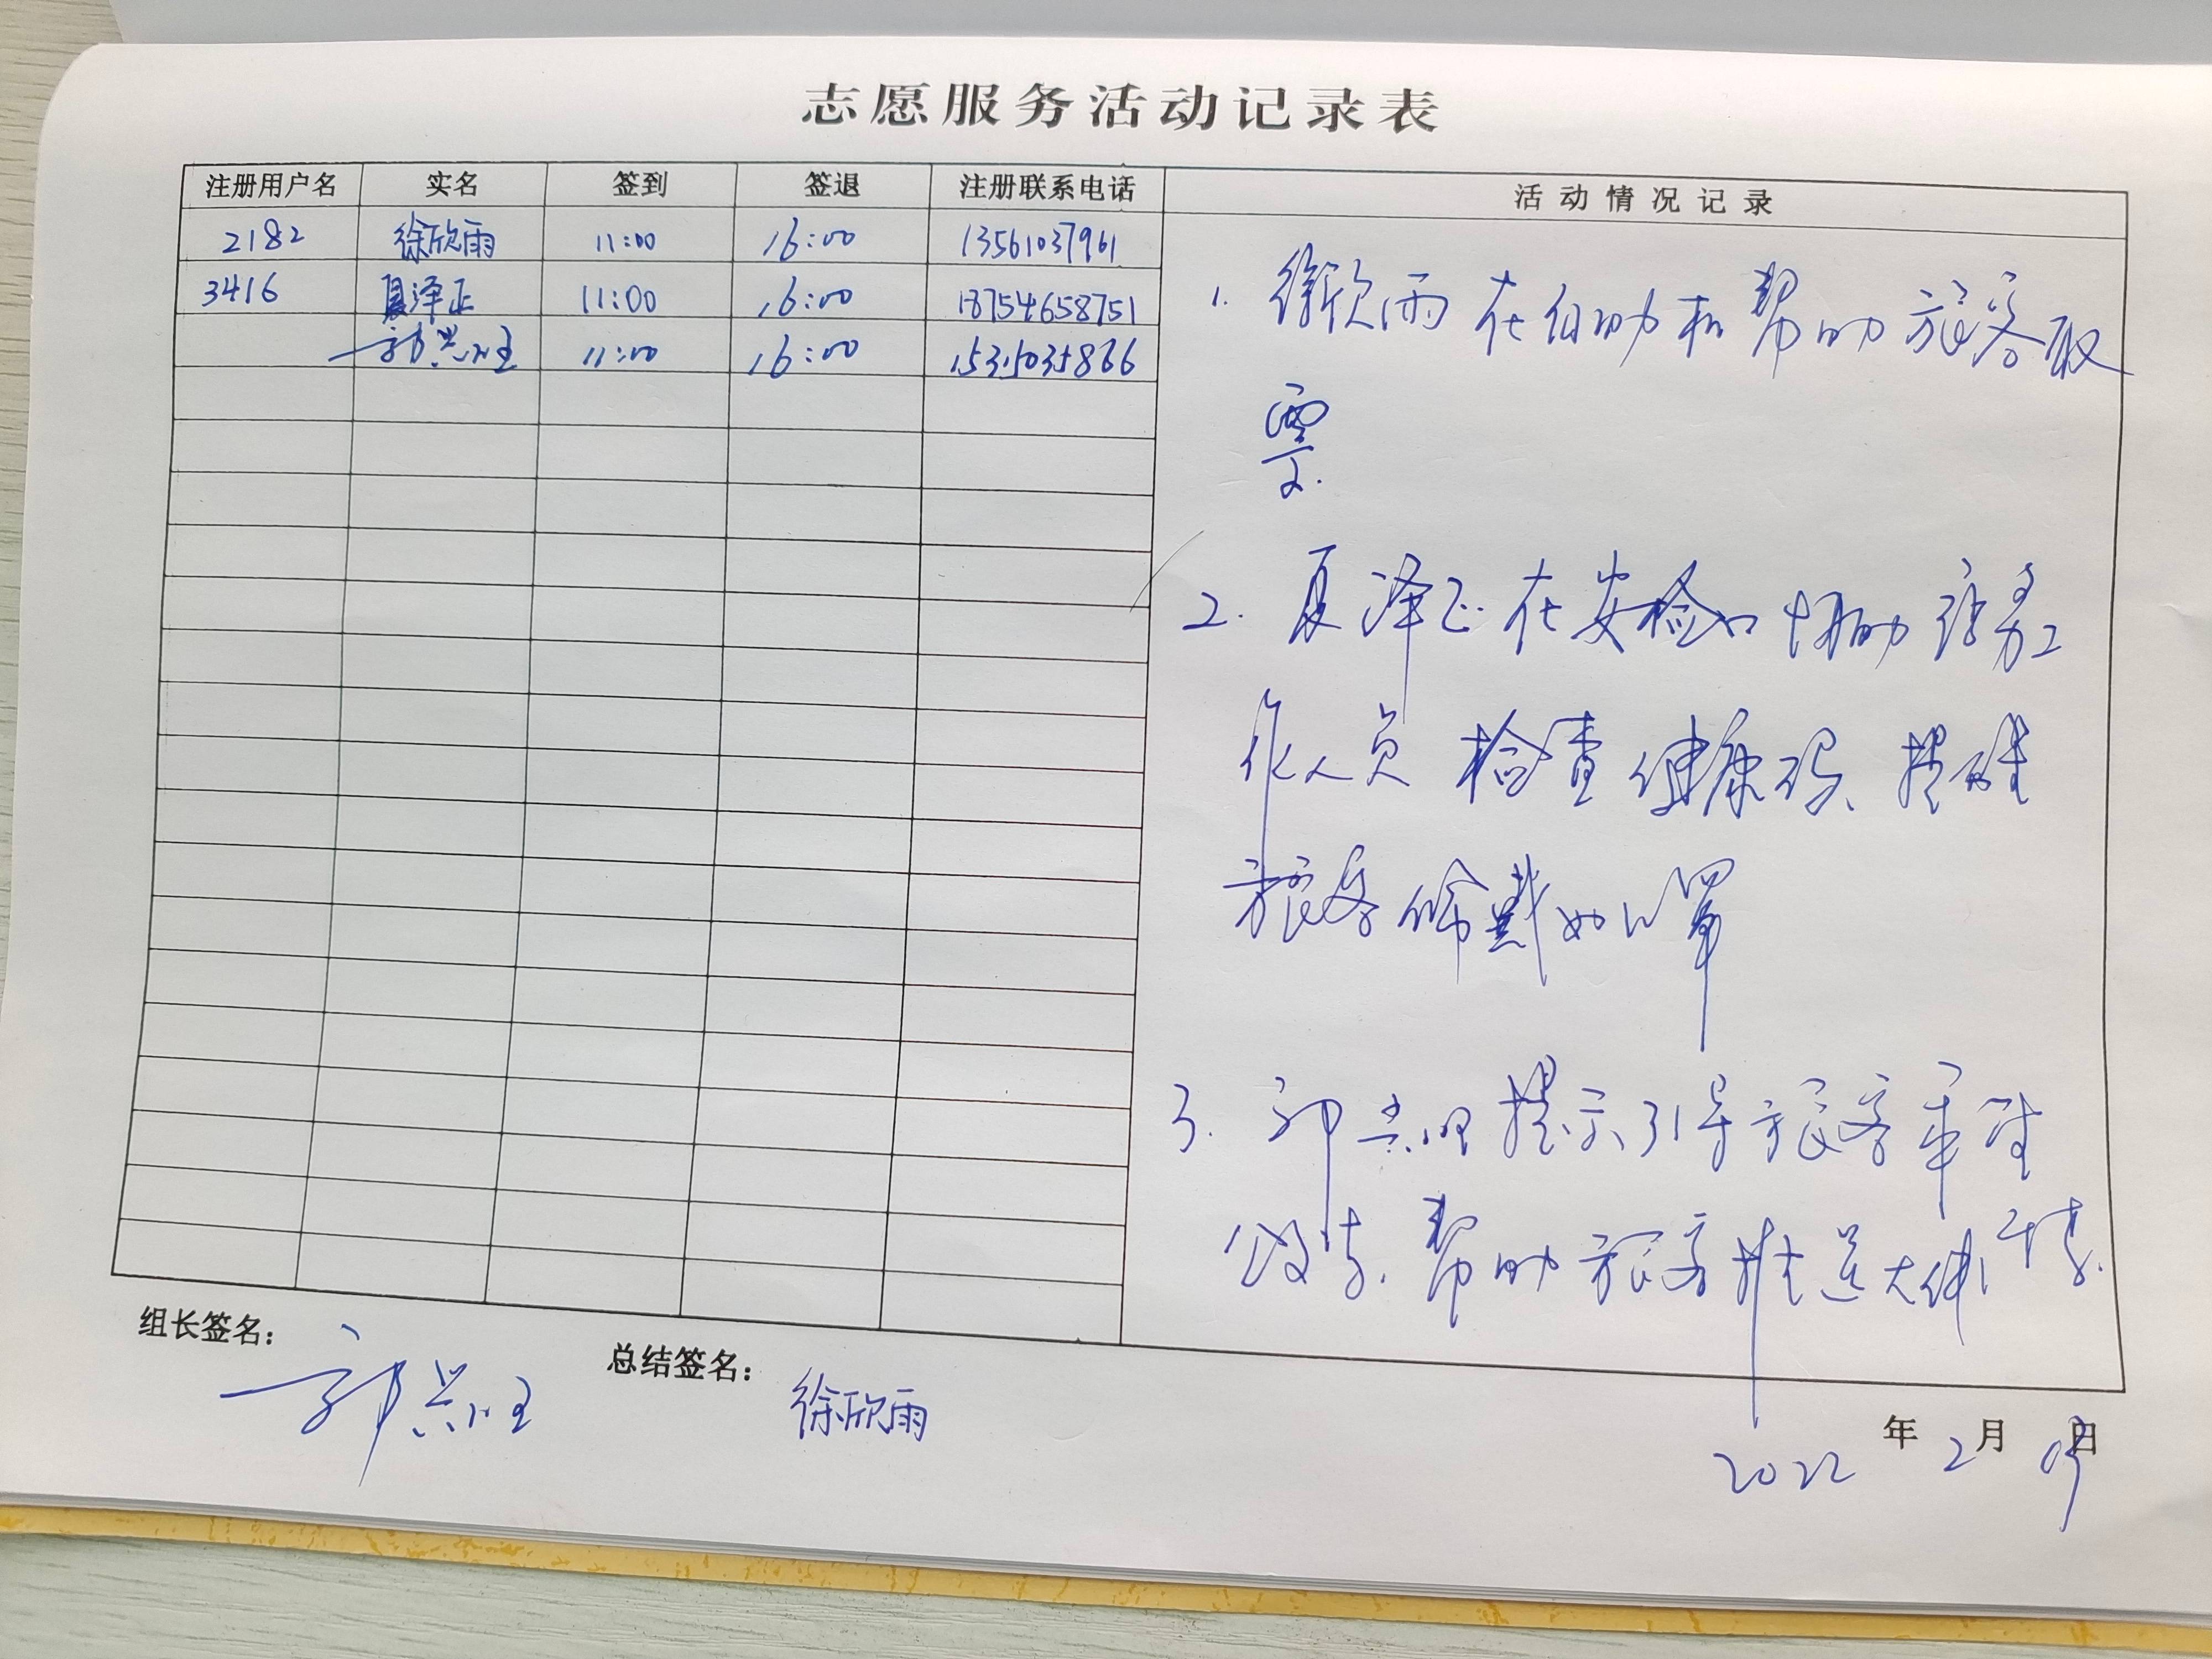 志愿服务活动记录表
注册用户名 实名 签到 签退 注册联系电话 活动情况记录
2182 徐欣雨 11:00 16:00 13561037961
3416 夏泽正 11:00 16:00 18754658751
11:00 16:00
1. 徐欣雨在自助机帮助旅客取
票.
2. 夏泽正在安检口协助
作人员检查健康码、提醒
旅客佩戴好口罩
3. 提示引导旅客
帮助旅客推送大件行李.
组长签名:
总结签名: 徐欣雨
2022年2月 日